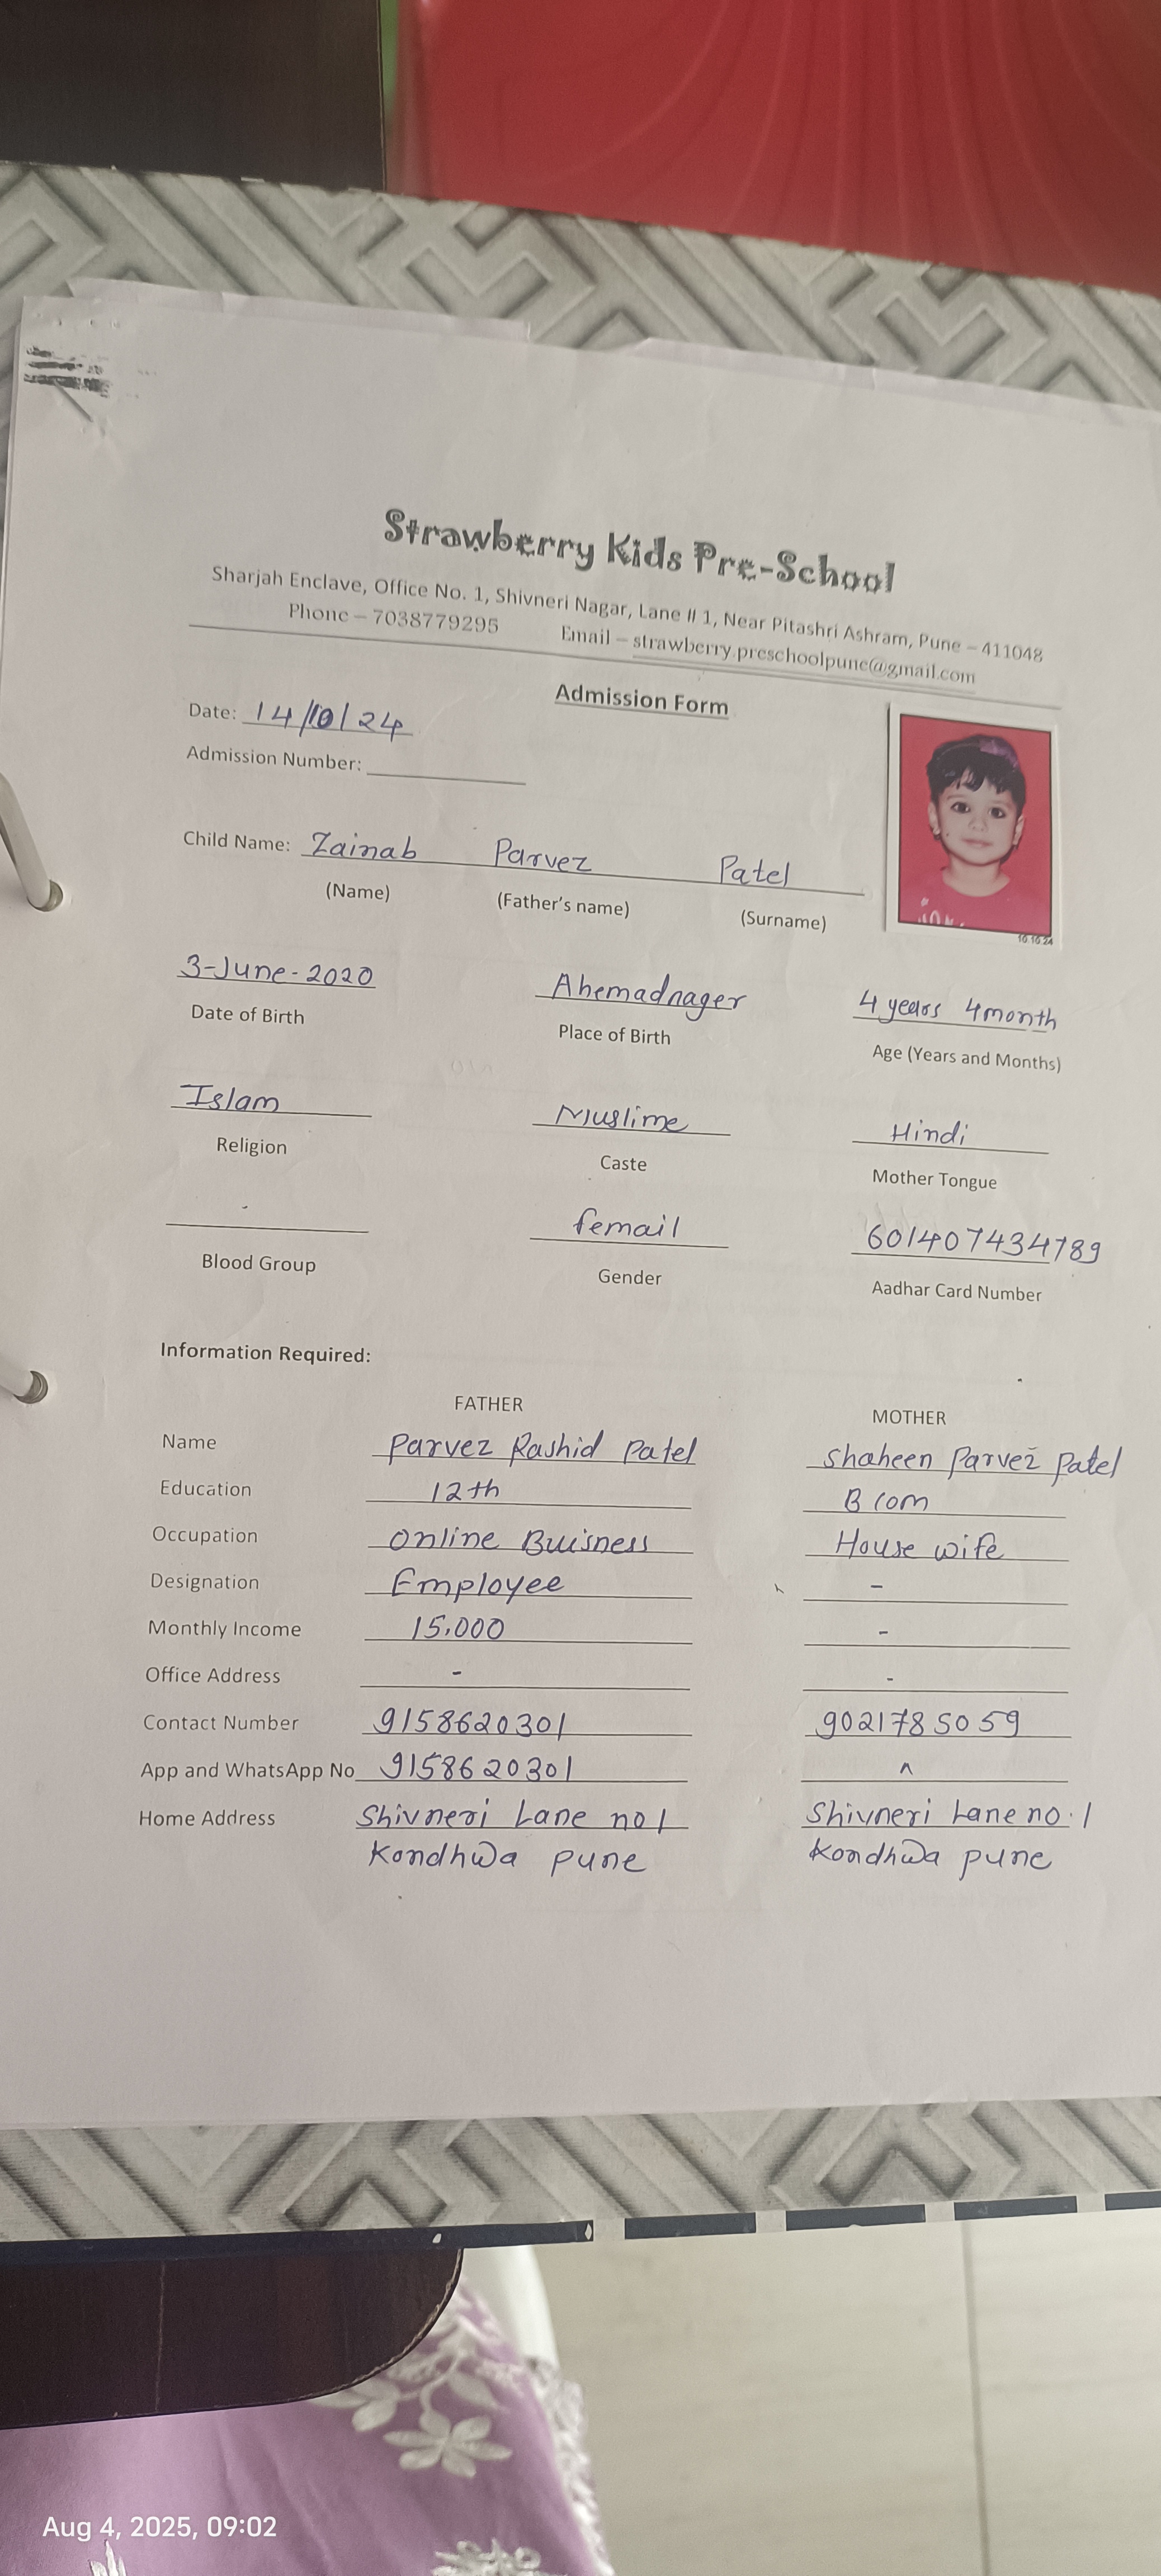 Strawberry Kids Pre-School
Sharjah Enclave, Office No. 1, Shivneri Nagar, Lane # 1, Near Pitashri Ashram, Pune – 411048
Phone – 7038779295 Email – strawberry.preschoolpune@gmail.com
Admission Form
Date: 14/10/24
Admission Number:
Child Name: Zainab Parvez Patel
(Name) (Father's name) (Surname)
10.10.24
3-June-2020 Ahemadnager 4 years 4month
Date of Birth Place of Birth Age (Years and Months)
Islam Muslime Hindi
Religion Caste Mother Tongue
- femail 601407434789
Blood Group Gender Aadhar Card Number
Information Required:
FATHER MOTHER
Name Parvez Rashid Patel Shaheen Parvez Patel
Education 12th B com
Occupation Online Buisness House wife
Designation Employee -
Monthly Income 15,000 -
Office Address - -
Contact Number 9158620301 9021785059
App and WhatsApp No 9158620301
Home Address Shivneri Lane no 1 Shivneri Lane no. 1
Kondhwa pune Kondhwa pune
Aug 4, 2025, 09:02